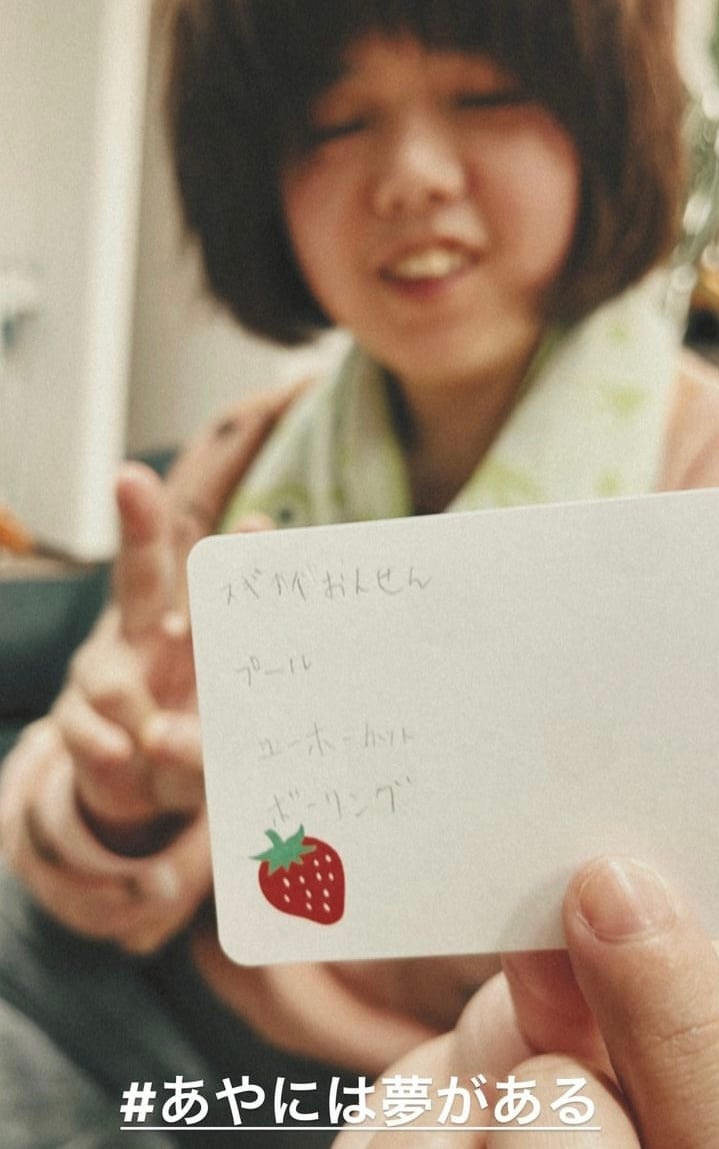 スギカイおんせん
プール
ユーホーカット
ボーリング
#あやには夢がある